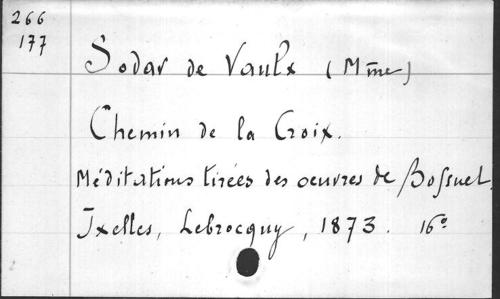 266
177
Sodar de Vaulx (Mme)
Chemin de la Croix.
Méditations tirées des oeuvres de Bossuet.
Ixelles, Lebrocquy, 1873. 16º